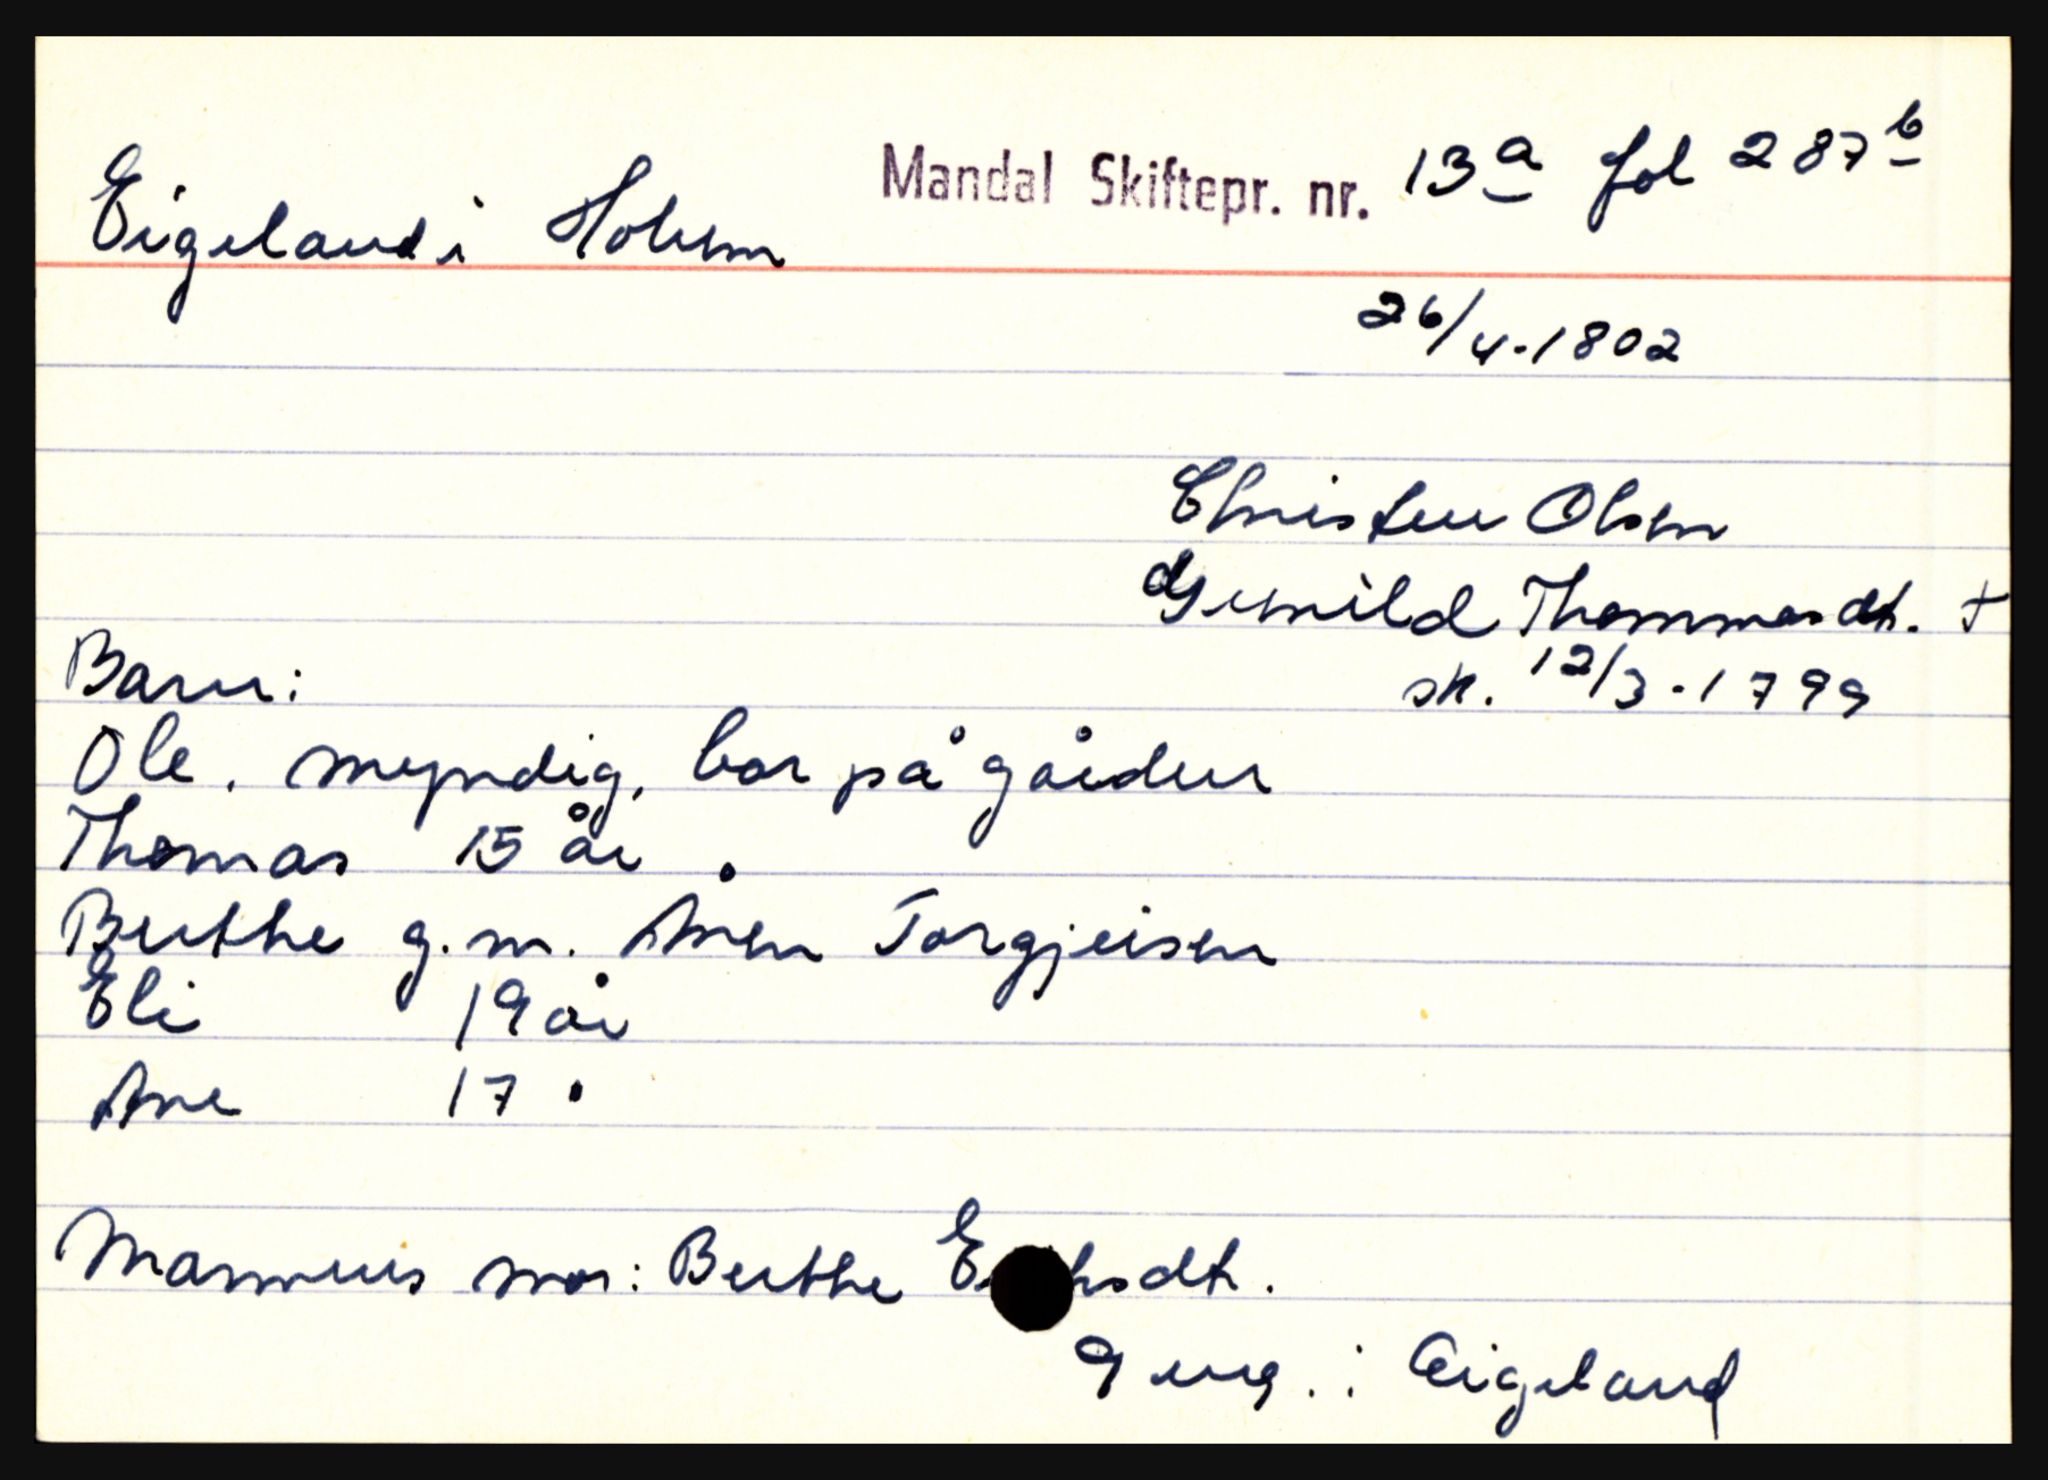 Mandal Skiftepr. nr. 13a fol 287b
Eigeland i Holum
26/4-1802
Christen Olsen
Gunild Thommesdt. +
sk. 12/3-1799
Barn:
Ole, myndig, bor på gården
Thomas 15 år.
Berthe g.m. Anen Torgjeisen
Eli 19 år
Ane 17 "
Mannens mor: Berthe dt.
Gung.: Eigeland